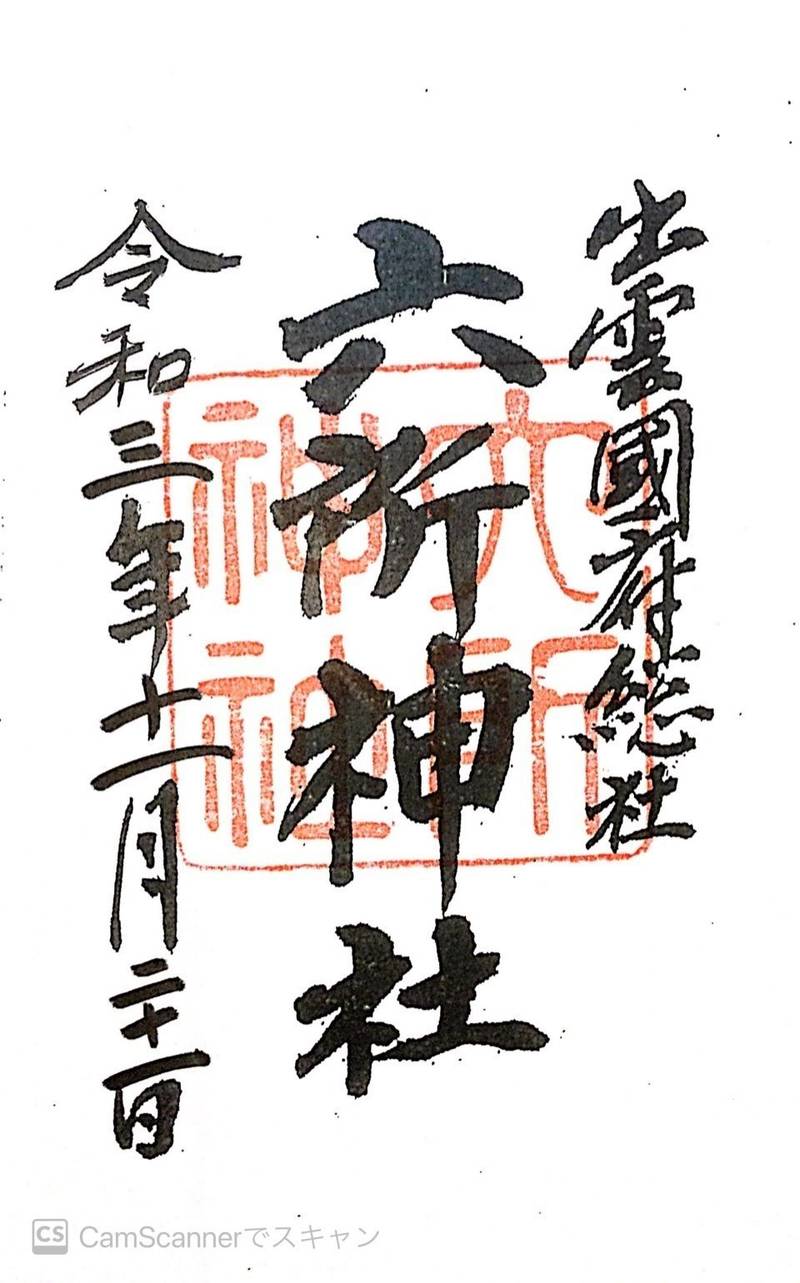 出雲國府総社
六所神社
令和三年十一月二十一日
六所
神社
CS CamScannerでスキャン